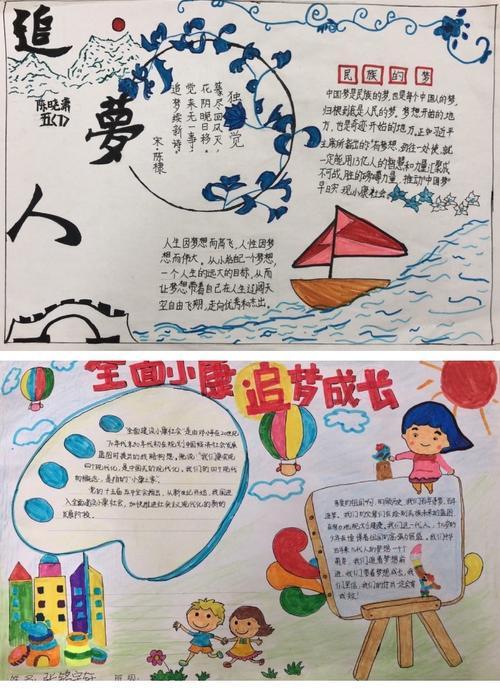 追
夢
人
陈晓潇
五(7)
独觉
暮尽回风灭,
花阴晚日移。
觉来无一事,
追梦续新诗。
宋·陈棣
民族的梦
中国梦是民族的梦,也是每个中国人的梦,
归根到底是人民的梦,梦想开始的地
方,也是奇迹开始的地方。正如习近平
主席所指出的“有梦想,劲往一处使,就
一定能用13亿人的智慧和力量汇聚成
不可战胜的磅礴力量,推动中国梦
早日实现小康社会
人生因梦想而高飞,人性因梦
想而伟大。从小给自己一个梦想,
一个人生的远大的目标,从而
让梦想带着自己在人生这间天
空自由飞翔,走向优秀和杰出。
全面小康 追梦成长
“全面建设小康社会”是由邓小平在20世纪
70年代末80年代初在规划中国经济社会发展
蓝图时提出的战略构想。他说:“我们要实现
四个现代化,是中国式的现代化。我们的四个现代
的概念,是指的“小康之家”。
党的十五届五中全会提出,从新世纪开始,我国进
入全面建设小康社会,加快推进社会主义现代化的新的
发展阶段。
们是祖国
少年在
年来几代人的梦想一个个
萌发,我们追着梦想前
进,我们带着梦想成长,我
们坚信,我们的付出一定会有
成效!
姓名:
班级: